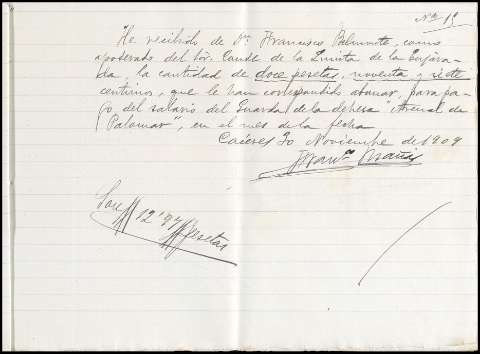 Nº 19
"He recibido de Dn. Francisco Belmonte, como
apoderado del Sor. Conde de la Quinta de la Enjara-
da, la cantidad de doce pesetas, noventa y siete
centimos, que le han correspondido abonar, para pa-
go del salario del Guarda de la dehesa "Arenal de
Palomar", en el mes de la fecha
Cáceres 30 Noviembre de 1909
Son 12'97 pesetas